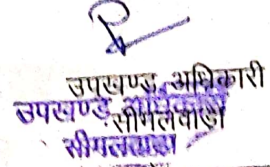 उपखण्ड अधिकारी
सीमलवाडा
उपखण्ड अधिकारी
सीमलवाडा